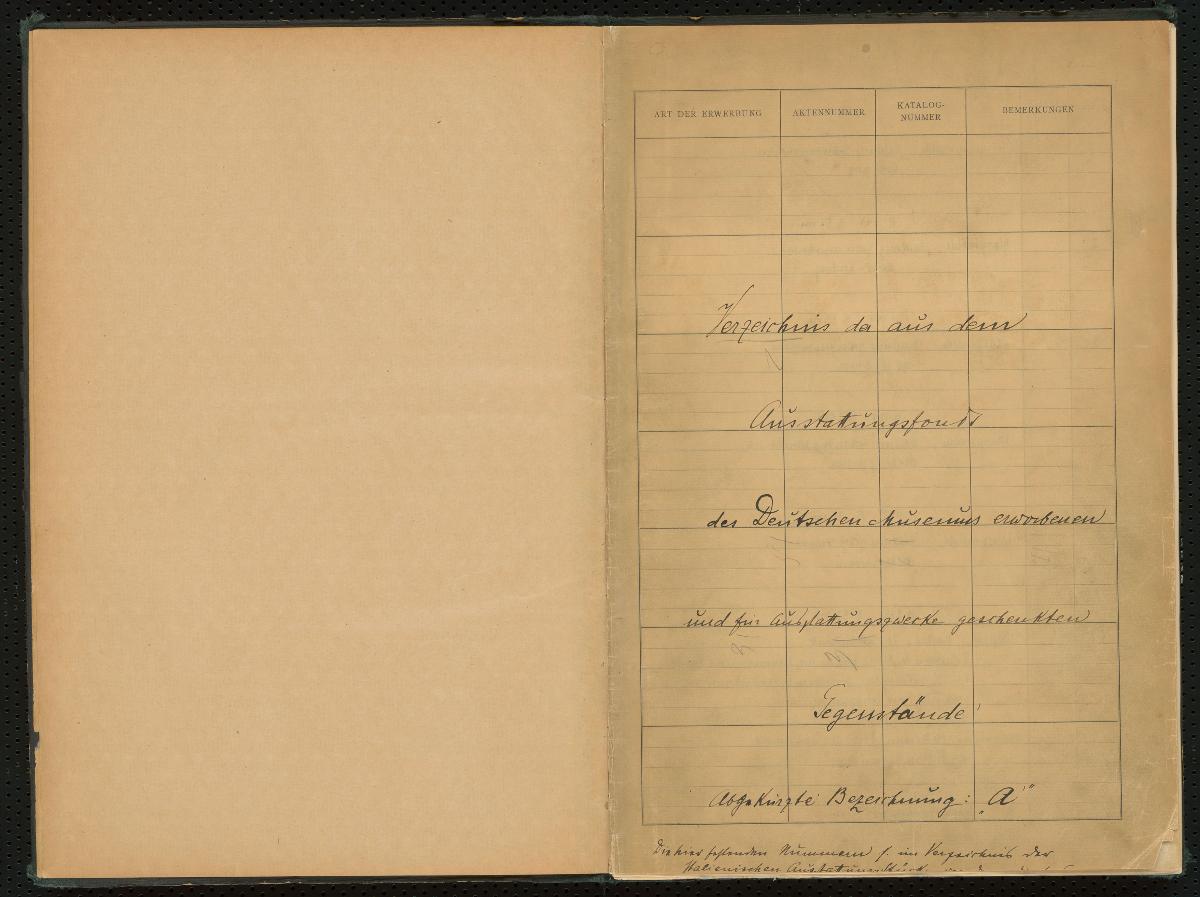 ART DER ERWERBUNG AKTENNUMMER KATALOG-NUMMER BEMERKUNGEN
Verzeichnis da aus dem
Ausstattungsfonds
des Deutschen Museums erworbenen
und für Ausstattungszwecke geschenkten
Gegenstände
Abgekürzte Bezeichnung: „A"
Die hier fehlenden Nummern s. im Verzeichnis der
Italienischen